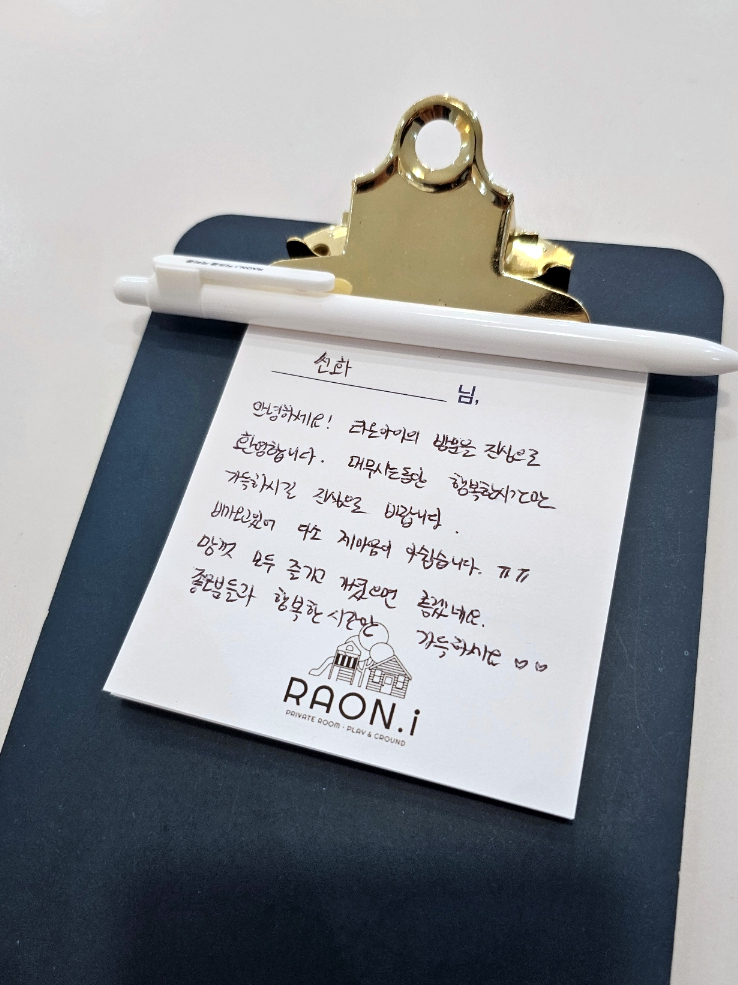 선화 님,
안녕하세요! 라온아이의 방문을 진심으로
환영합니다. 머무시는동안 행복한시간만
가득하시길 진심으로 바랍니다.
비가오고있어 다소 제마음이 아쉽습니다. ㅠㅠ
맘껏 모두 즐기고 가셨으면 좋겠네요.
좋은분들과 행복한 시간만 가득하시요 ♡♡
RAON.i
PRIVATE ROOM · PLAY & GROUND